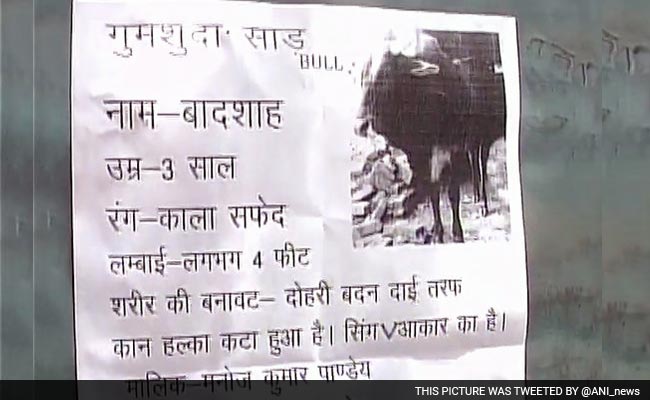 गुमशुदा साड़
BULL
नाम-बादशाह
उम्र-3 साल
रंग-काला सफेद
लम्बाई-लगभग 4 फीट
शरीर की बनावट- दोहरी बदन दाई तरफ
कान हल्का कटा हुआ है। सिंग V आकार का है।
मालिक-मनोज कुमार पाण्डेय
THIS PICTURE WAS TWEETED BY @ANI_news